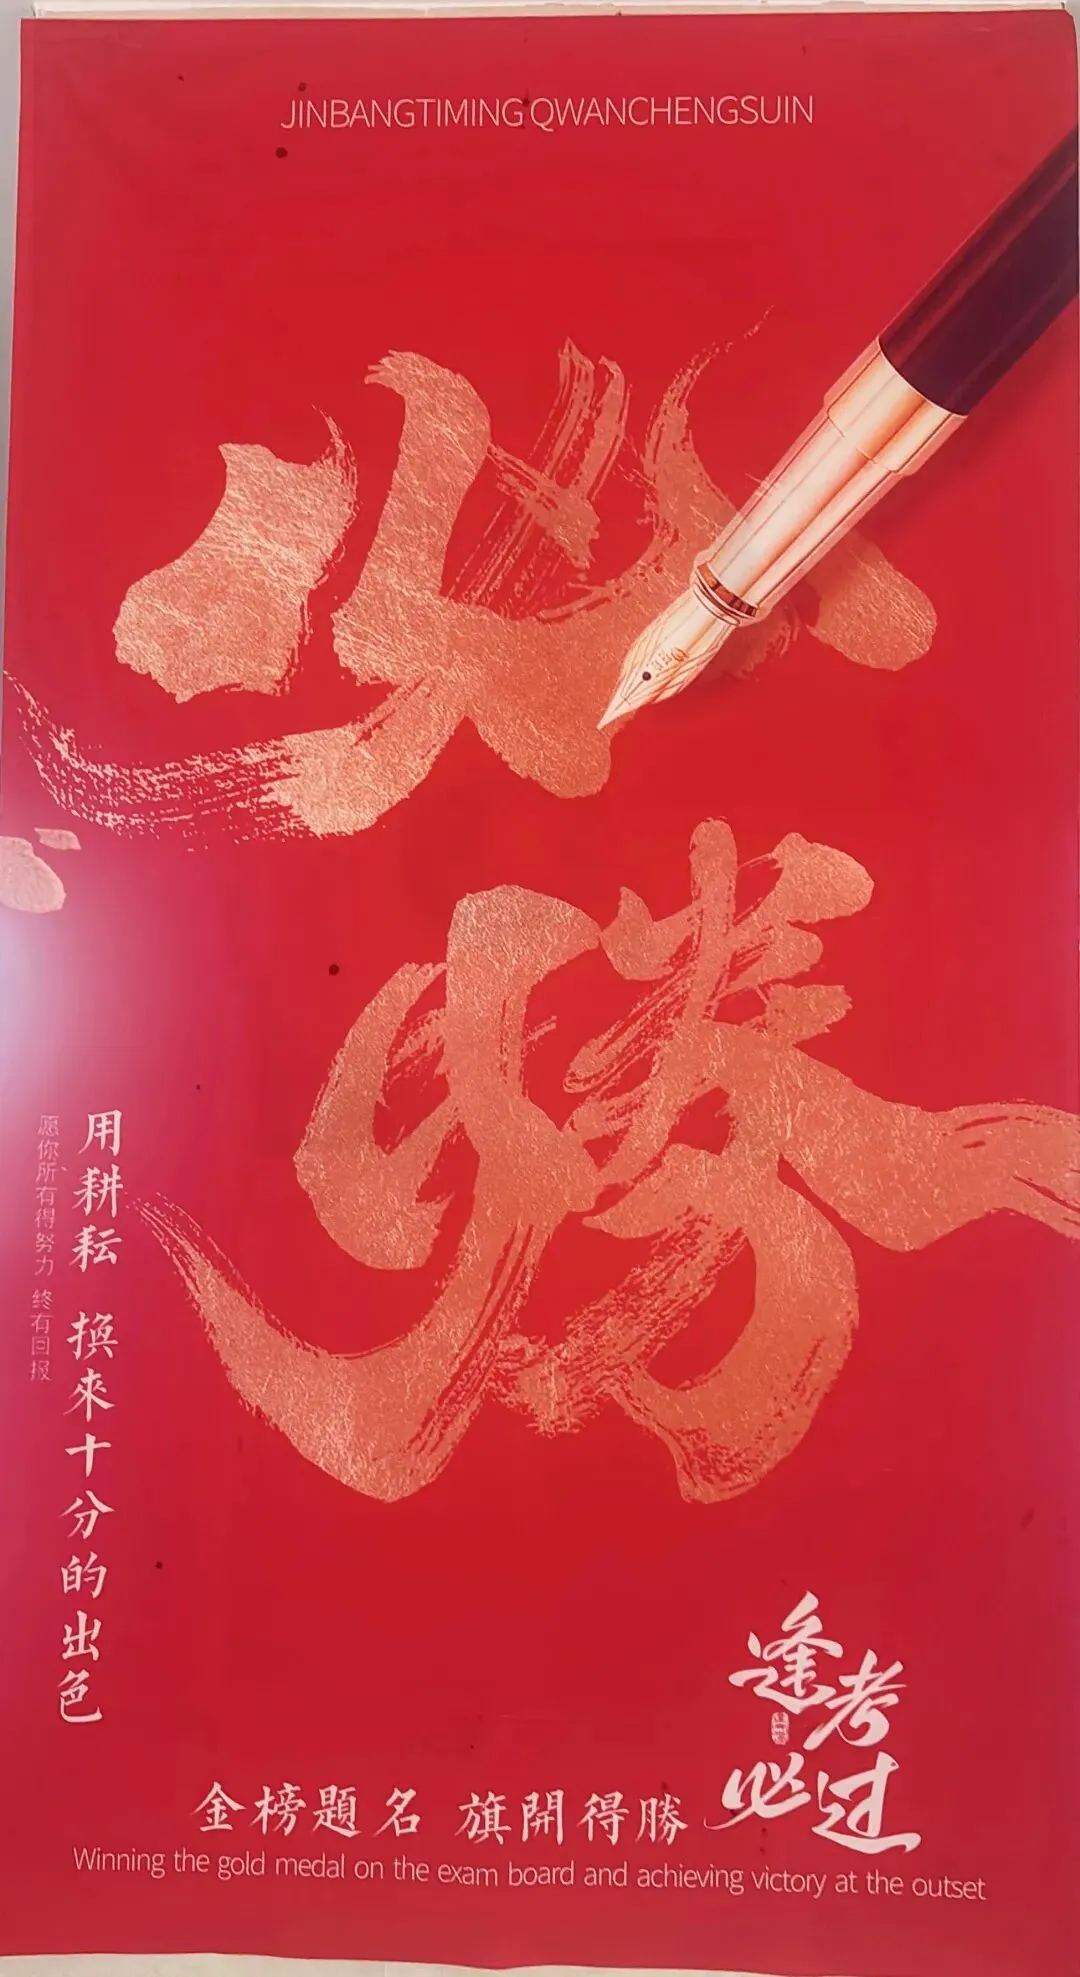 JINBANGTIMING QWANCHENGSUIN
必
勝
用耕耘 换來十分的出色
愿你所有得努力 终有回报
逢考
必过
金榜題名 旗開得勝
Winning the gold medal on the exam board and achieving victory at the outset